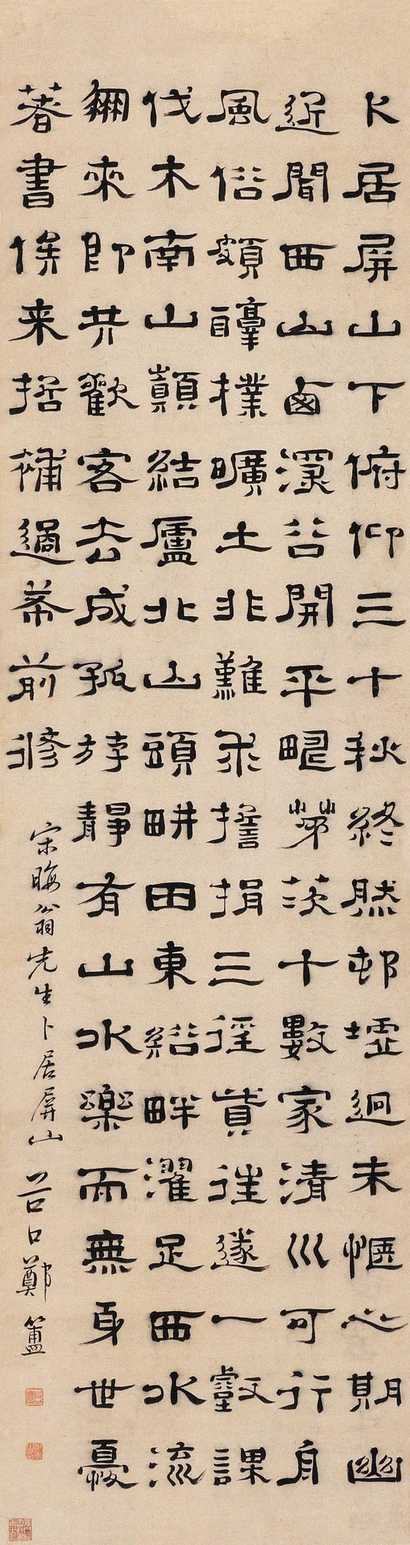 卜居屏山下俯仰三十秋終然邨墟迥未愜心期幽
近聞西山鹵深谷開平疇茅茨十數家清川可行舟
風俗頗醇樸曠土非難求擔捐三徑貲往遂一壑謀
伐木南山顛結廬北山頭畊田東谿畔濯足西水流
朋來即共歡客去成孤游靜有山水樂而無身世憂
著書俟来哲補過希前修
宋晦翁先生卜居屏山 谷口鄭簠